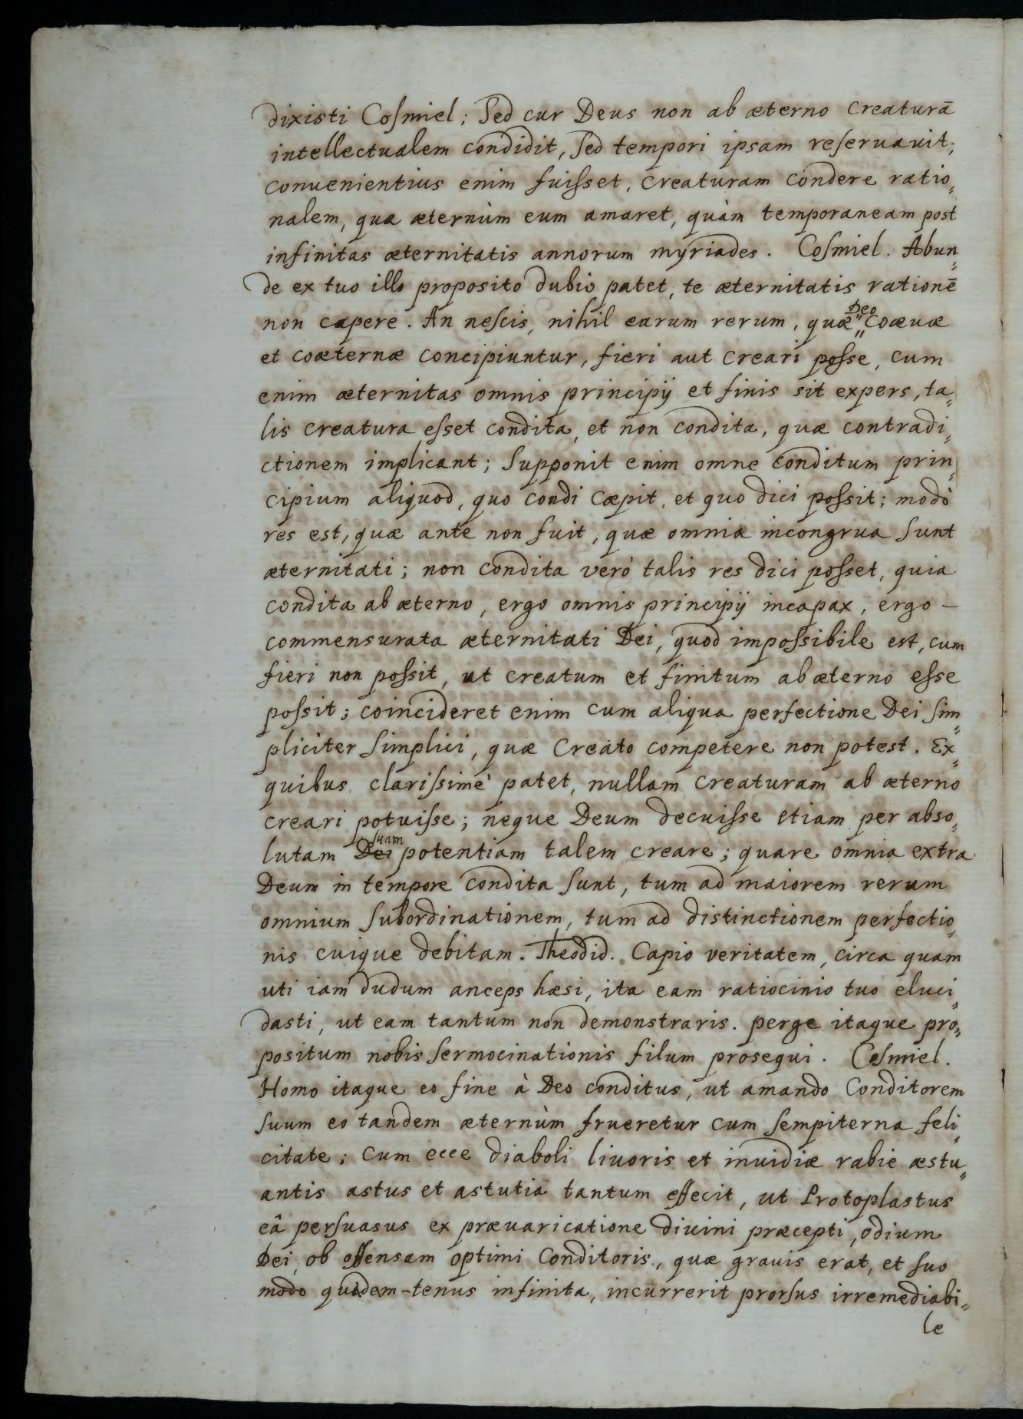 dixisti Cosmiel; Sed cur Deus non ab æterno creaturā
intellectualem condidit, sed tempori ipsam reseruauit;
conuenientius enim fuisset, creaturam condere ratio„
nalem, quæ æternùm eum amaret, quàm temporaneam post
infinitas æternitatis annorum myriades. Cosmiel. Abun„
de ex tuo illo proposito dubio patet, te æternitatis rationē
non capere. An nescis, nihil earum rerum, quæ Deo coæuæ
et coæternæ concipiuntur, fieri aut creari posse, cum
enim æternitas omnis principij et finis sit expers, ta„
lis creatura esset condita, et non condita, quæ contradi„
ctionem implicant; Supponit enim omne conditum prin„
cipium aliquod, quo condi cæpit, et quo dici possit; modò
res est, quæ ante non fuit, quæ omnia incongrua sunt
æternitati; non condita verò talis res dici posset, quia
condita ab æterno, ergo omnis principij incapax, ergo –
commensurata æternitati Dei, quod impossibile est, cum
fieri non possit, ut creatum et finitum ab æterno esse
possit; coincideret enim cum aliqua perfectione Dei sim„
pliciter simplici, quæ Creato competere non potest. Ex„
quibus clarissimè patet, nullam creaturam ab æterno
creari potuisse; neque Deum decuisse etiam per abso„
lutam Dei suam potentiam talem creare; quare omnia extra
Deum in tempore condita sunt, tum ad maiorem rerum
omnium subordinationem, tum ad distinctionem perfectio„
nis cuique debitam. Theodid. Capio veritatem, circa quam
uti iam dudum anceps hæsi, ita eam ratiocinio tuo eluci„
dasti, ut eam tantum non demonstraris. perge itaque pro„
positum nobis sermocinationis filum prosequi. Cosmiel.
Homo itaque eo fine à Deo conditus, ut amando Conditorem
suum eo tandem æternùm frueretur cum sempiterna feli„
citate; cum ecce diaboli liuoris et inuidiæ rabie æstu„
antis astus et astutia tantum effecit, ut Protoplastus
eâ persuasus ex præuaricatione diuini præcepti, odium
Dei, ob offensam optimi Conditoris, quæ grauis erat, et suo
modo quodam-tenus infinita, incurrerit prorsus irremediabi„
le